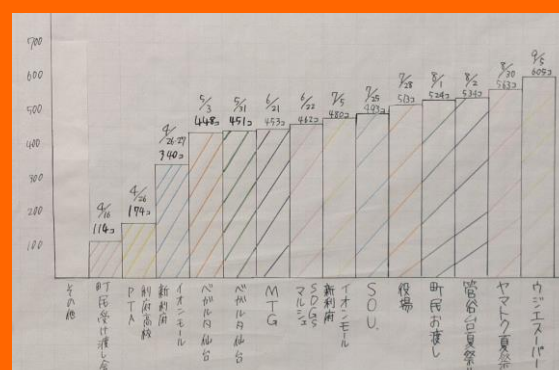 700
600
500
400
300
200
100
4/16
114コ
4/26
174コ
4/26.27
340コ
5/3
448コ
5/31
451コ
6/21
453コ
6/22
462コ
7/5
480コ
7/25
493コ
7/28
513コ
8/1
524コ
8/2
534コ
8/30
563コ
9/5
605コ
その他
町民受け渡し会
利府高校
PTA
イオンモール
新利府
ベガルタ仙台
ベガルタ仙台
MTG
SDGs
マルシェ
イオンモール
新利府
SOU.
役場
町民お渡し
菅谷台夏祭り
ヤマトク夏祭
ウジエスーパー